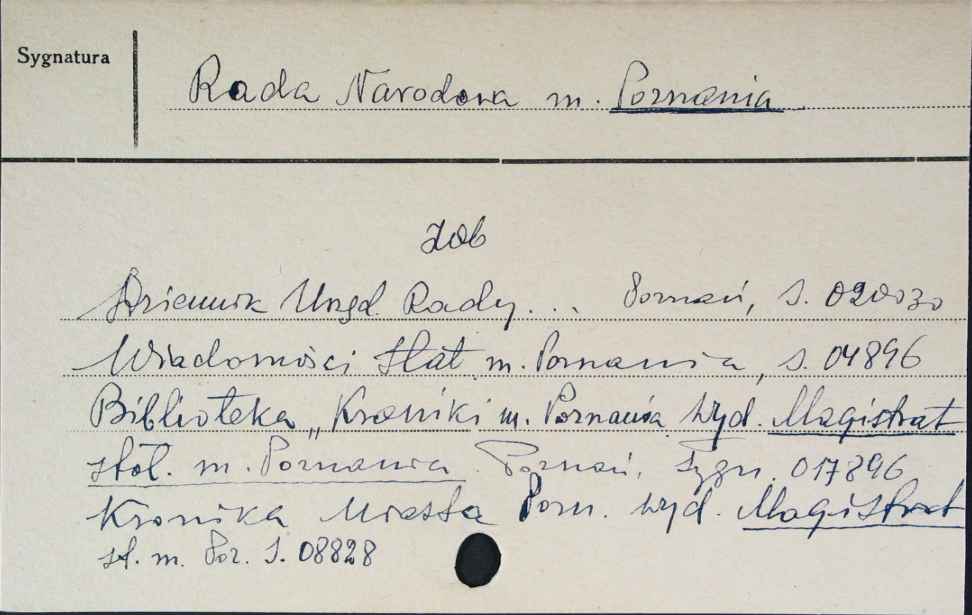 Sygnatura
Rada Narodowa m. Poznania
zob
Dziennik Urzęd. Rady... Poznań, S. 020030
Wiadomości Stat. m. Poznania, S. 04896
Biblioteka „Kroniki m. Poznania Wyd. Magistrat
stoł. m. Poznania. Poznań, Sygn. 017896
Kronika Miasta Pozn. Wyd. Magistrat
st. m. Poz. S. 08828